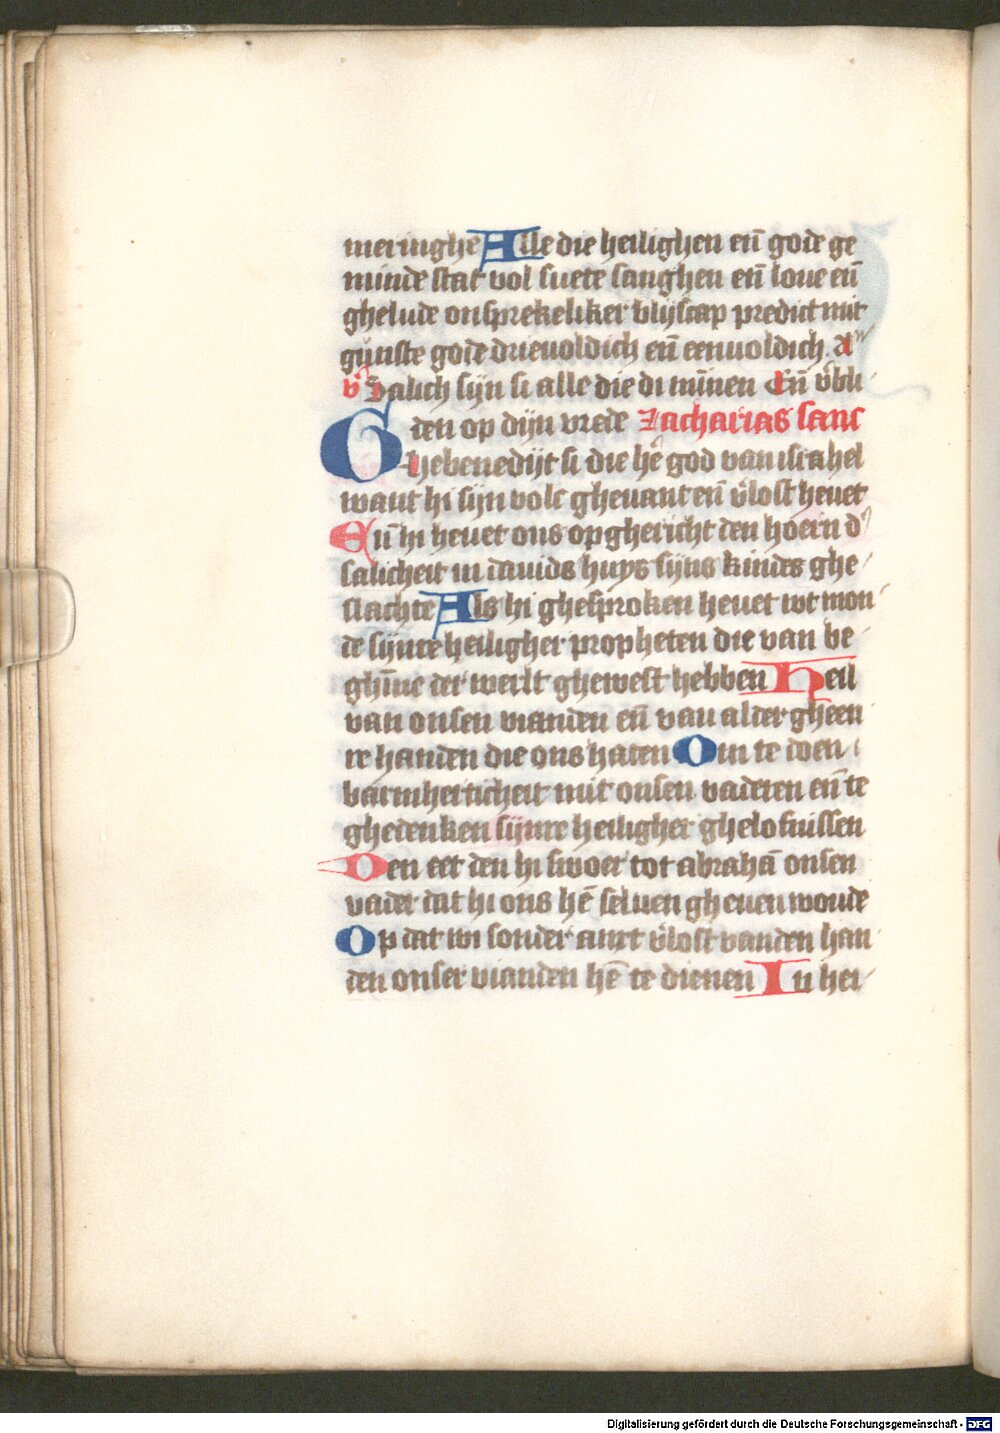 meringhe Alle die heilighen en̄ gode ge
minde stat vol suete sanghen en̄ loue en̄
ghelude onsprekeliker blijscap predict mit
gunste gode drieuoldich en̄ eenuoldich
Salich sijn si alle die di mīnen En̄ v̄bli
den op dijn vrede Zacharias sanc
Ghebenedijt si die hē god van israhel
want hi sijn volc gheuant en̄ v̄lost heuet
En̄ hi heuet ons opghericht den hoern d'
salicheit in dauids huys sijns kindes ghe
slachte Als hi ghesproken heuet wt mon
de sijnre heiligher propheten die van be
ghīne der werlt ghewest hebben Heil
van onsen vianden en̄ van alder gheen
re handen die ons haten Om te doen
barmherticheit mit onsen vaderen en̄ te
ghedenken sijnre heiligher ghelofnissen
Den eet den hi swoer tot abrahā onsen
vader dat hi ons hē seluen gheuen woude
Op dat wi sonder anxt v̄lost vanden han
den onser vianden hē te dienen In hei
Digitalisierung gefördert durch die Deutsche Forschungsgemeinschaft - DFG